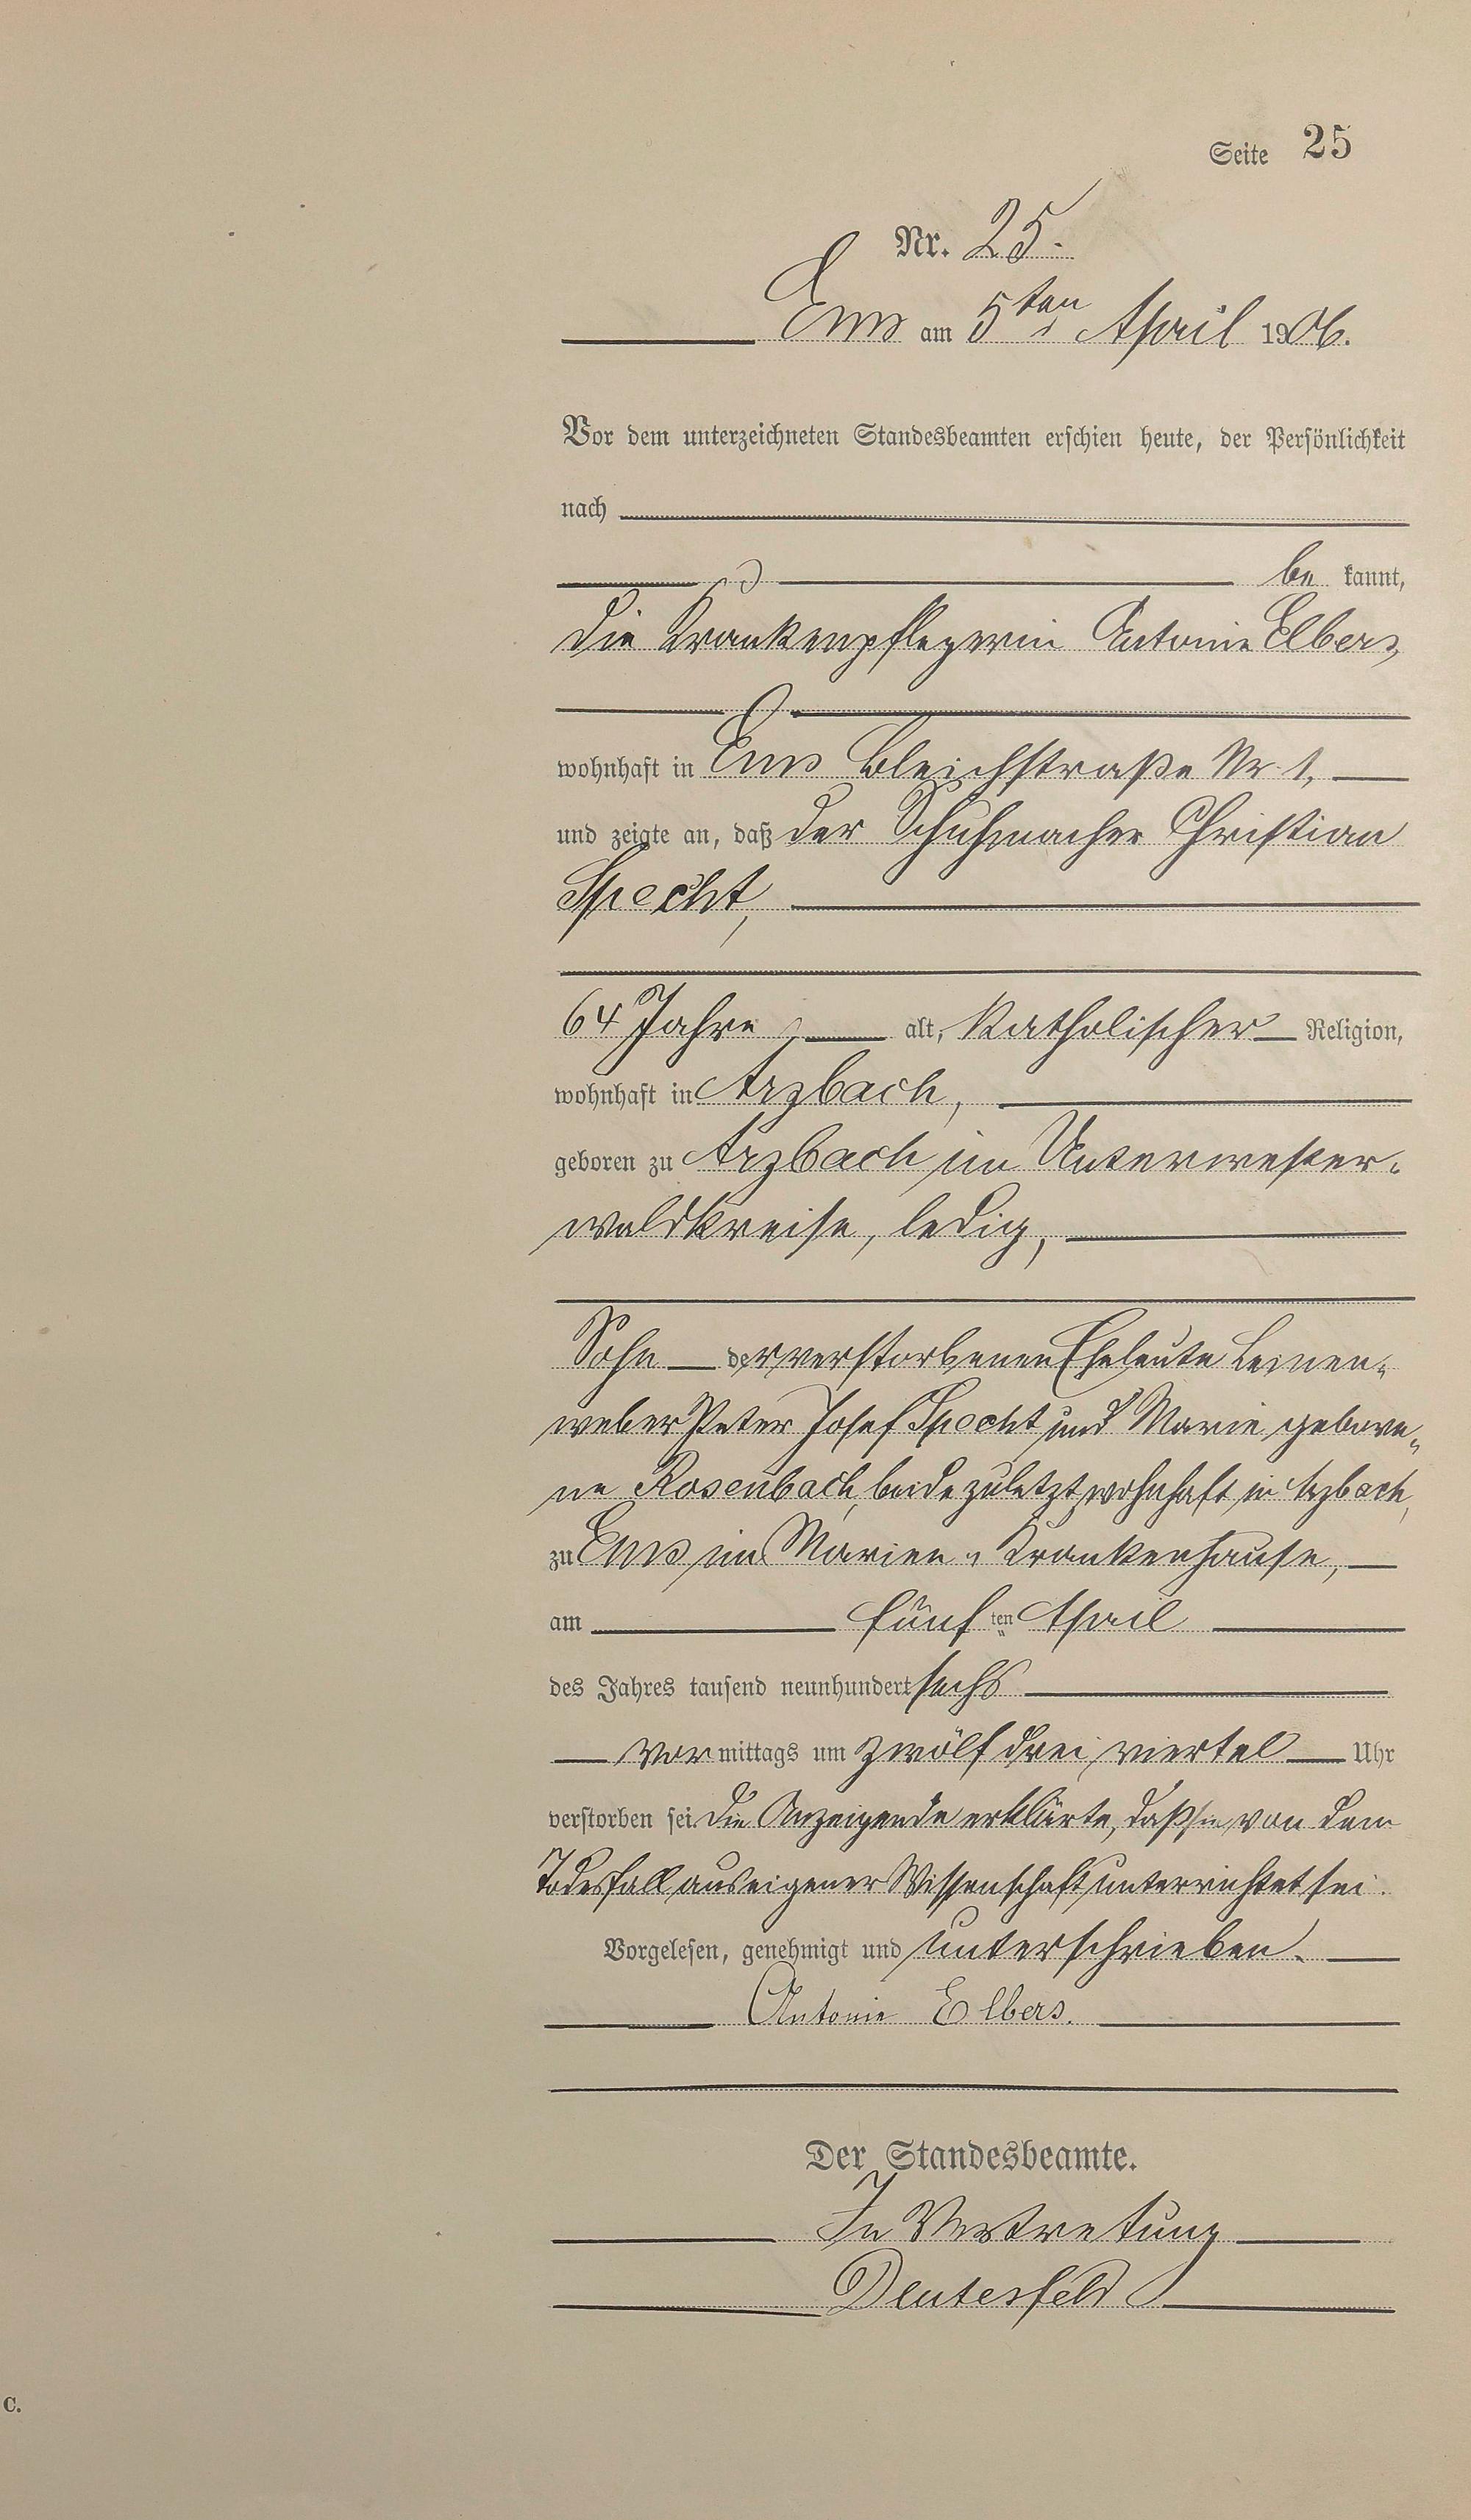 Seite 25
Nr. 25.
Ems am 5ten April 1906.
Vor dem unterzeichneten Standesbeamten erschien heute, der Persönlichkeit
nach
be kannt,
die Krankenpflegerin Antonie Elbers,
wohnhaft in Ems Bleichstraße Nr. 1,
und zeigte an, daß der Schuhmacher Christian
Specht,
64 Jahre, alt, katholischer Religion,
wohnhaft in Arzbach,
geboren zu Arzbach im Unterwester-
waldkreise, ledig,
Sohn der verstorbenen Eheleute Leinen-
weber Peter Josef Specht und Marie gebore-
ne Rosenbach, beide zuletzt wohnhaft in Arzbach,
zu Ems im Marien-Krankenhause,
am fünf ten April
des Jahres tausend neunhundert sechs
Vor mittags um zwölf drei viertel Uhr
verstorben sei. Die Anzeigende erklärte, daß sie von dem
Todesfall aus eigener Wissenschaft unterrichtet sei.
Vorgelesen, genehmigt und unterschrieben.
Antonie Elbers.
Der Standesbeamte.
In Vertretung
Deutesfeld
C.